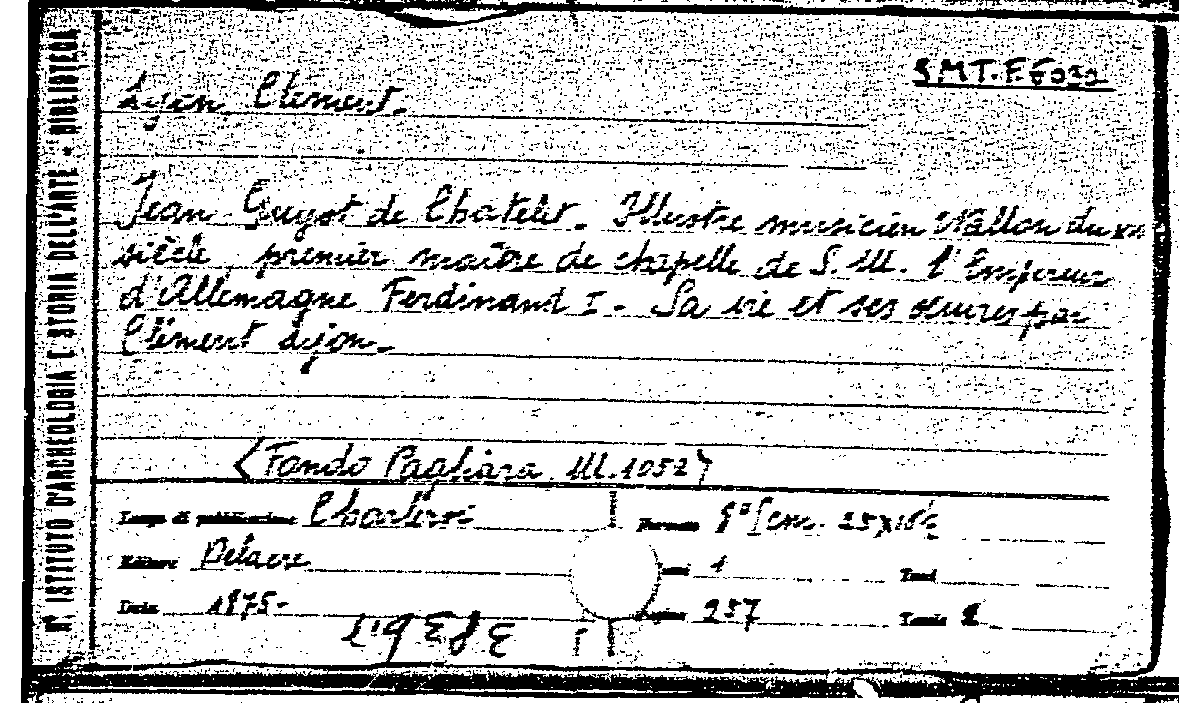 R. ISTITUTO D'ARCHEOLOGIA E STORIA DELL'ARTE - BIBLIOTECA
SMT.F.6032
Lyon Clément.
Jean Guyot de Chatelet. Illustre musicien Wallon du XVI
siècle premier maître de chapelle de S. M. l'Empereur
d'Allemagne Ferdinand I. Sa vie et ses œuvres par
Clément Lyon.
(Fondo Pagliara M.1052)
Luogo di pubblicazione Charleroi
Formato 8° [cm. 25x16½
Editore Delacre
1
Tomi
Data 1875.
Pagine 257
Tavole 2